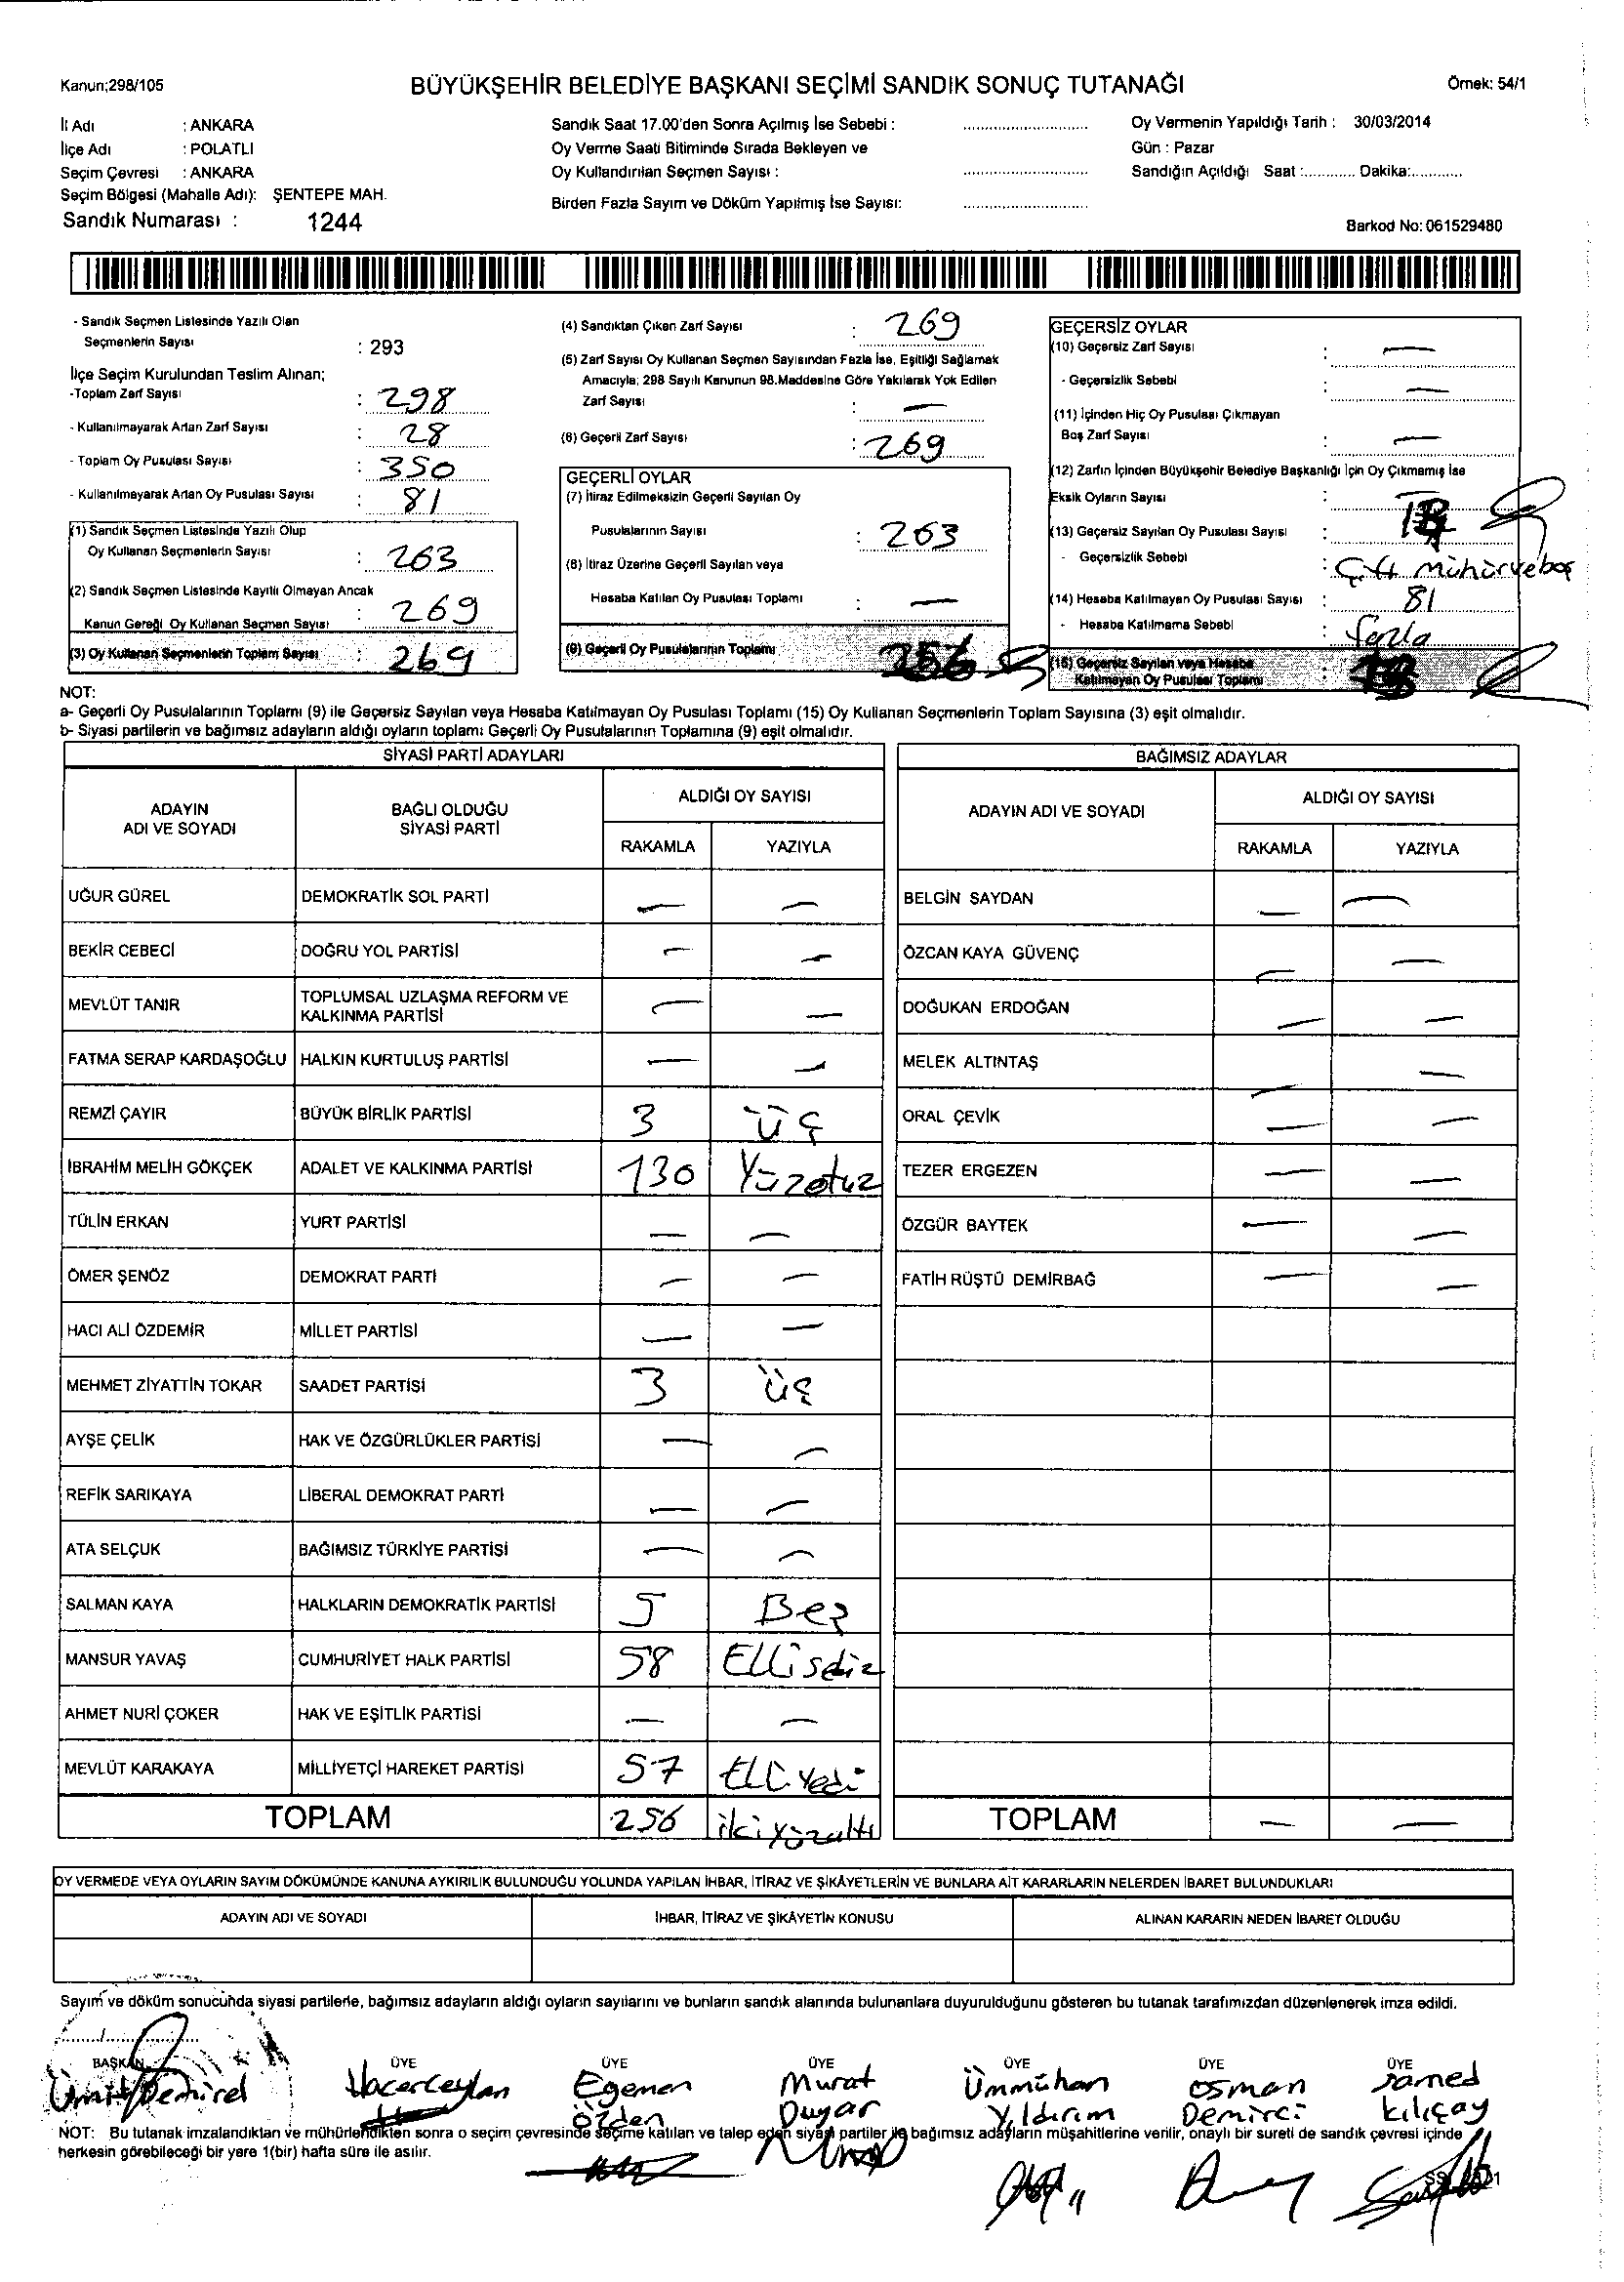 Kanun;298/105
BÜYÜKŞEHİR BELEDİYE BAŞKANI SEÇİMİ SANDIK SONUÇ TUTANAĞI
Örnek: 54/1
İl Adı : ANKARA
İlçe Adı : POLATLI
Seçim Çevresi : ANKARA
Seçim Bölgesi (Mahalle Adı): ŞENTEPE MAH.
Sandık Numarası : 1244
Sandık Saat 17.00'den Sonra Açılmış İse Sebebi :
Oy Verme Saati Bitiminde Sırada Bekleyen ve
Oy Kullandırılan Seçmen Sayısı :
Birden Fazla Sayım ve Döküm Yapılmış İse Sayısı:
Oy Vermenin Yapıldığı Tarih : 30/03/2014
Gün : Pazar
Sandığın Açıldığı Saat :............ Dakika:............
Barkod No: 061529480
- Sandık Seçmen Listesinde Yazılı Olan
Seçmenlerin Sayısı : 293
İlçe Seçim Kurulundan Teslim Alınan;
-Toplam Zarf Sayısı : 298
- Kullanılmayarak Artan Zarf Sayısı : 28
- Toplam Oy Pusulası Sayısı : 350
- Kullanılmayarak Artan Oy Pusulası Sayısı : 81
(1) Sandık Seçmen Listesinde Yazılı Olup
Oy Kullanan Seçmenlerin Sayısı : 263
(2) Sandık Seçmen Listesinde Kayıtlı Olmayan Ancak
Kanun Gereği Oy Kullanan Seçmen Sayısı : 269
(3) Oy Kullanan Seçmenlerin Toplam Sayısı : 269
(4) Sandıktan Çıkan Zarf Sayısı : 269
(5) Zarf Sayısı Oy Kullanan Seçmen Sayısından Fazla İse, Eşitliği Sağlamak
Amacıyla; 298 Sayılı Kanunun 98.Maddesine Göre Yakılarak Yok Edilen
Zarf Sayısı : —
(6) Geçerli Zarf Sayısı : 269
GEÇERLİ OYLAR
(7) İtiraz Edilmeksizin Geçerli Sayılan Oy
Pusulalarının Sayısı : 263
(8) İtiraz Üzerine Geçerli Sayılan veya
Hesaba Katılan Oy Pusulası Toplamı : —
(9) Geçerli Oy Pusulalarının Toplamı 256
GEÇERSİZ OYLAR
(10) Geçersiz Zarf Sayısı : —
- Geçersizlik Sebebi : —
(11) İçinden Hiç Oy Pusulası Çıkmayan
Boş Zarf Sayısı : —
(12) Zarfın İçinden Büyükşehir Belediye Başkanlığı İçin Oy Çıkmamış İse
Eksik Oyların Sayısı : —
(13) Geçersiz Sayılan Oy Pusulası Sayısı :
- Geçersizlik Sebebi : Çift mühür ve boş
(14) Hesaba Katılmayan Oy Pusulası Sayısı : 81
- Hesaba Katılmama Sebebi : fazla
(15) Geçersiz Sayılan veya Hesaba
Katılmayan Oy Pusulası Toplamı :
NOT:
a- Geçerli Oy Pusulalarının Toplamı (9) ile Geçersiz Sayılan veya Hesaba Katılmayan Oy Pusulası Toplamı (15) Oy Kullanan Seçmenlerin Toplam Sayısına (3) eşit olmalıdır.
b- Siyasi partilerin ve bağımsız adayların aldığı oyların toplamı Geçerli Oy Pusulalarının Toplamına (9) eşit olmalıdır.
SİYASİ PARTİ ADAYLARI
ADAYIN ADI VE SOYADI BAĞLI OLDUĞU SİYASİ PARTİ ALDIĞI OY SAYISI
RAKAMLA YAZIYLA
UĞUR GÜREL DEMOKRATİK SOL PARTİ — —
BEKİR CEBECİ DOĞRU YOL PARTİSİ — —
MEVLÜT TANIR TOPLUMSAL UZLAŞMA REFORM VE KALKINMA PARTİSİ — —
FATMA SERAP KARDAŞOĞLU HALKIN KURTULUŞ PARTİSİ — —
REMZİ ÇAYIR BÜYÜK BİRLİK PARTİSİ 3 üç
İBRAHİM MELİH GÖKÇEK ADALET VE KALKINMA PARTİSİ 130 Yüzotuz
TÜLİN ERKAN YURT PARTİSİ — —
ÖMER ŞENÖZ DEMOKRAT PARTİ — —
HACI ALİ ÖZDEMİR MİLLET PARTİSİ — —
MEHMET ZİYATTİN TOKAR SAADET PARTİSİ 3 üç
AYŞE ÇELİK HAK VE ÖZGÜRLÜKLER PARTİSİ — —
REFİK SARIKAYA LİBERAL DEMOKRAT PARTİ — —
ATA SELÇUK BAĞIMSIZ TÜRKİYE PARTİSİ — —
SALMAN KAYA HALKLARIN DEMOKRATİK PARTİSİ 5 Beş
MANSUR YAVAŞ CUMHURİYET HALK PARTİSİ 58 Ellisdiz
AHMET NURİ ÇOKER HAK VE EŞİTLİK PARTİSİ — —
MEVLÜT KARAKAYA MİLLİYETÇİ HAREKET PARTİSİ 57 Elliyedi
TOPLAM 256 ikiyüzaltı
BAĞIMSIZ ADAYLAR
ADAYIN ADI VE SOYADI ALDIĞI OY SAYISI
RAKAMLA YAZIYLA
BELGİN SAYDAN — —
ÖZCAN KAYA GÜVENÇ — —
DOĞUKAN ERDOĞAN — —
MELEK ALTINTAŞ — —
ORAL ÇEVİK — —
TEZER ERGEZEN — —
ÖZGÜR BAYTEK — —
FATİH RÜŞTÜ DEMİRBAĞ — —
TOPLAM — —
OY VERMEDE VEYA OYLARIN SAYIM DÖKÜMÜNDE KANUNA AYKIRILIK BULUNDUĞU YOLUNDA YAPILAN İHBAR, İTİRAZ VE ŞİKÂYETLERİN VE BUNLARA AİT KARARLARIN NELERDEN İBARET BULUNDUKLARI
ADAYIN ADI VE SOYADI İHBAR, İTİRAZ VE ŞİKÂYETİN KONUSU ALINAN KARARIN NEDEN İBARET OLDUĞU
Sayım ve döküm sonucunda siyasi partilerle, bağımsız adayların aldığı oyların sayılarını ve bunların sandık alanında bulunanlara duyurulduğunu gösteren bu tutanak tarafımızdan düzenlenerek imza edildi.
BAŞKAN ÜYE ÜYE ÜYE ÜYE ÜYE ÜYE
Ümit Demirel Hacer Ceylan Egemen Özden Murat Duyar Ümmühan Yıldırım Osman Demirci Samed Kılıçay
NOT: Bu tutanak imzalandıktan ve mühürlendikten sonra o seçim çevresinde seçime katılan ve talep eden siyasi partiler ile bağımsız adayların müşahitlerine verilir, onaylı bir sureti de sandık çevresi içinde
herkesin görebileceği bir yere 1(bir) hafta süre ile asılır.